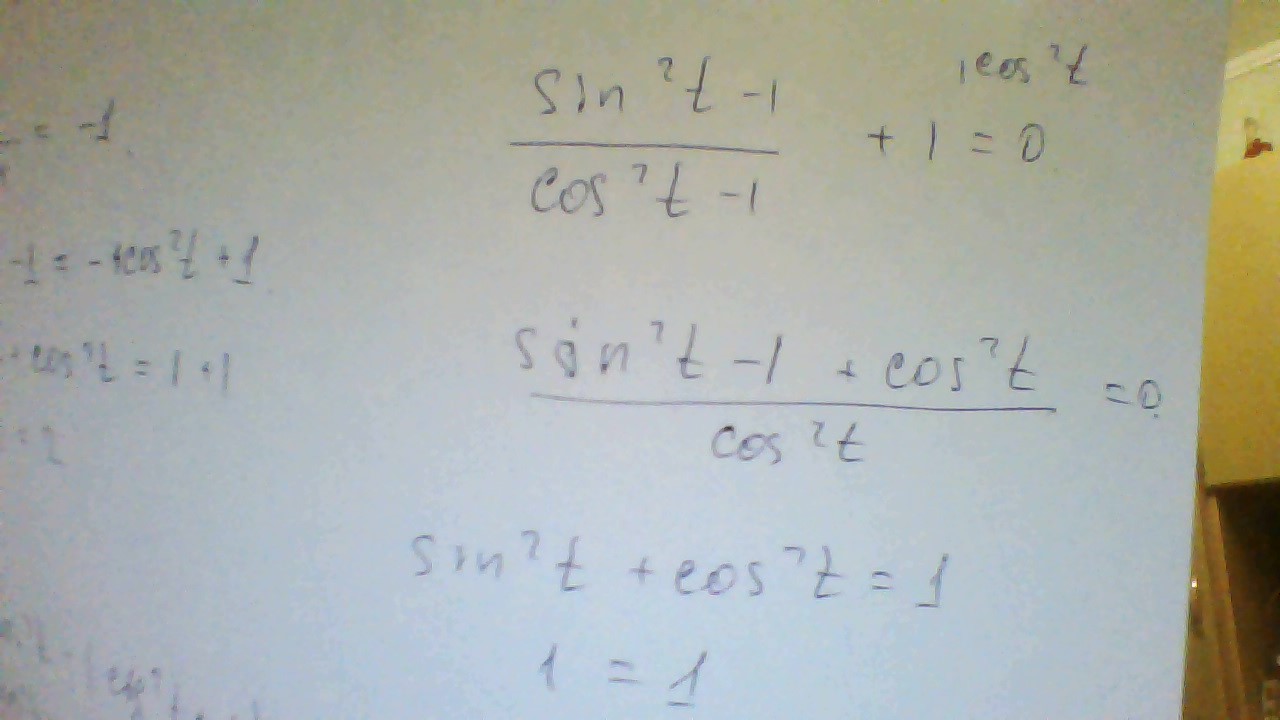 = -1
-1 = -cos²t + 1
+ cos²t = 1 + 1
= 2
1cos²t
sin²t - 1
+ 1 = 0
cos²t - 1
sin²t - 1 + cos²t
= 0
cos²t
sin²t + cos²t = 1
1 = 1